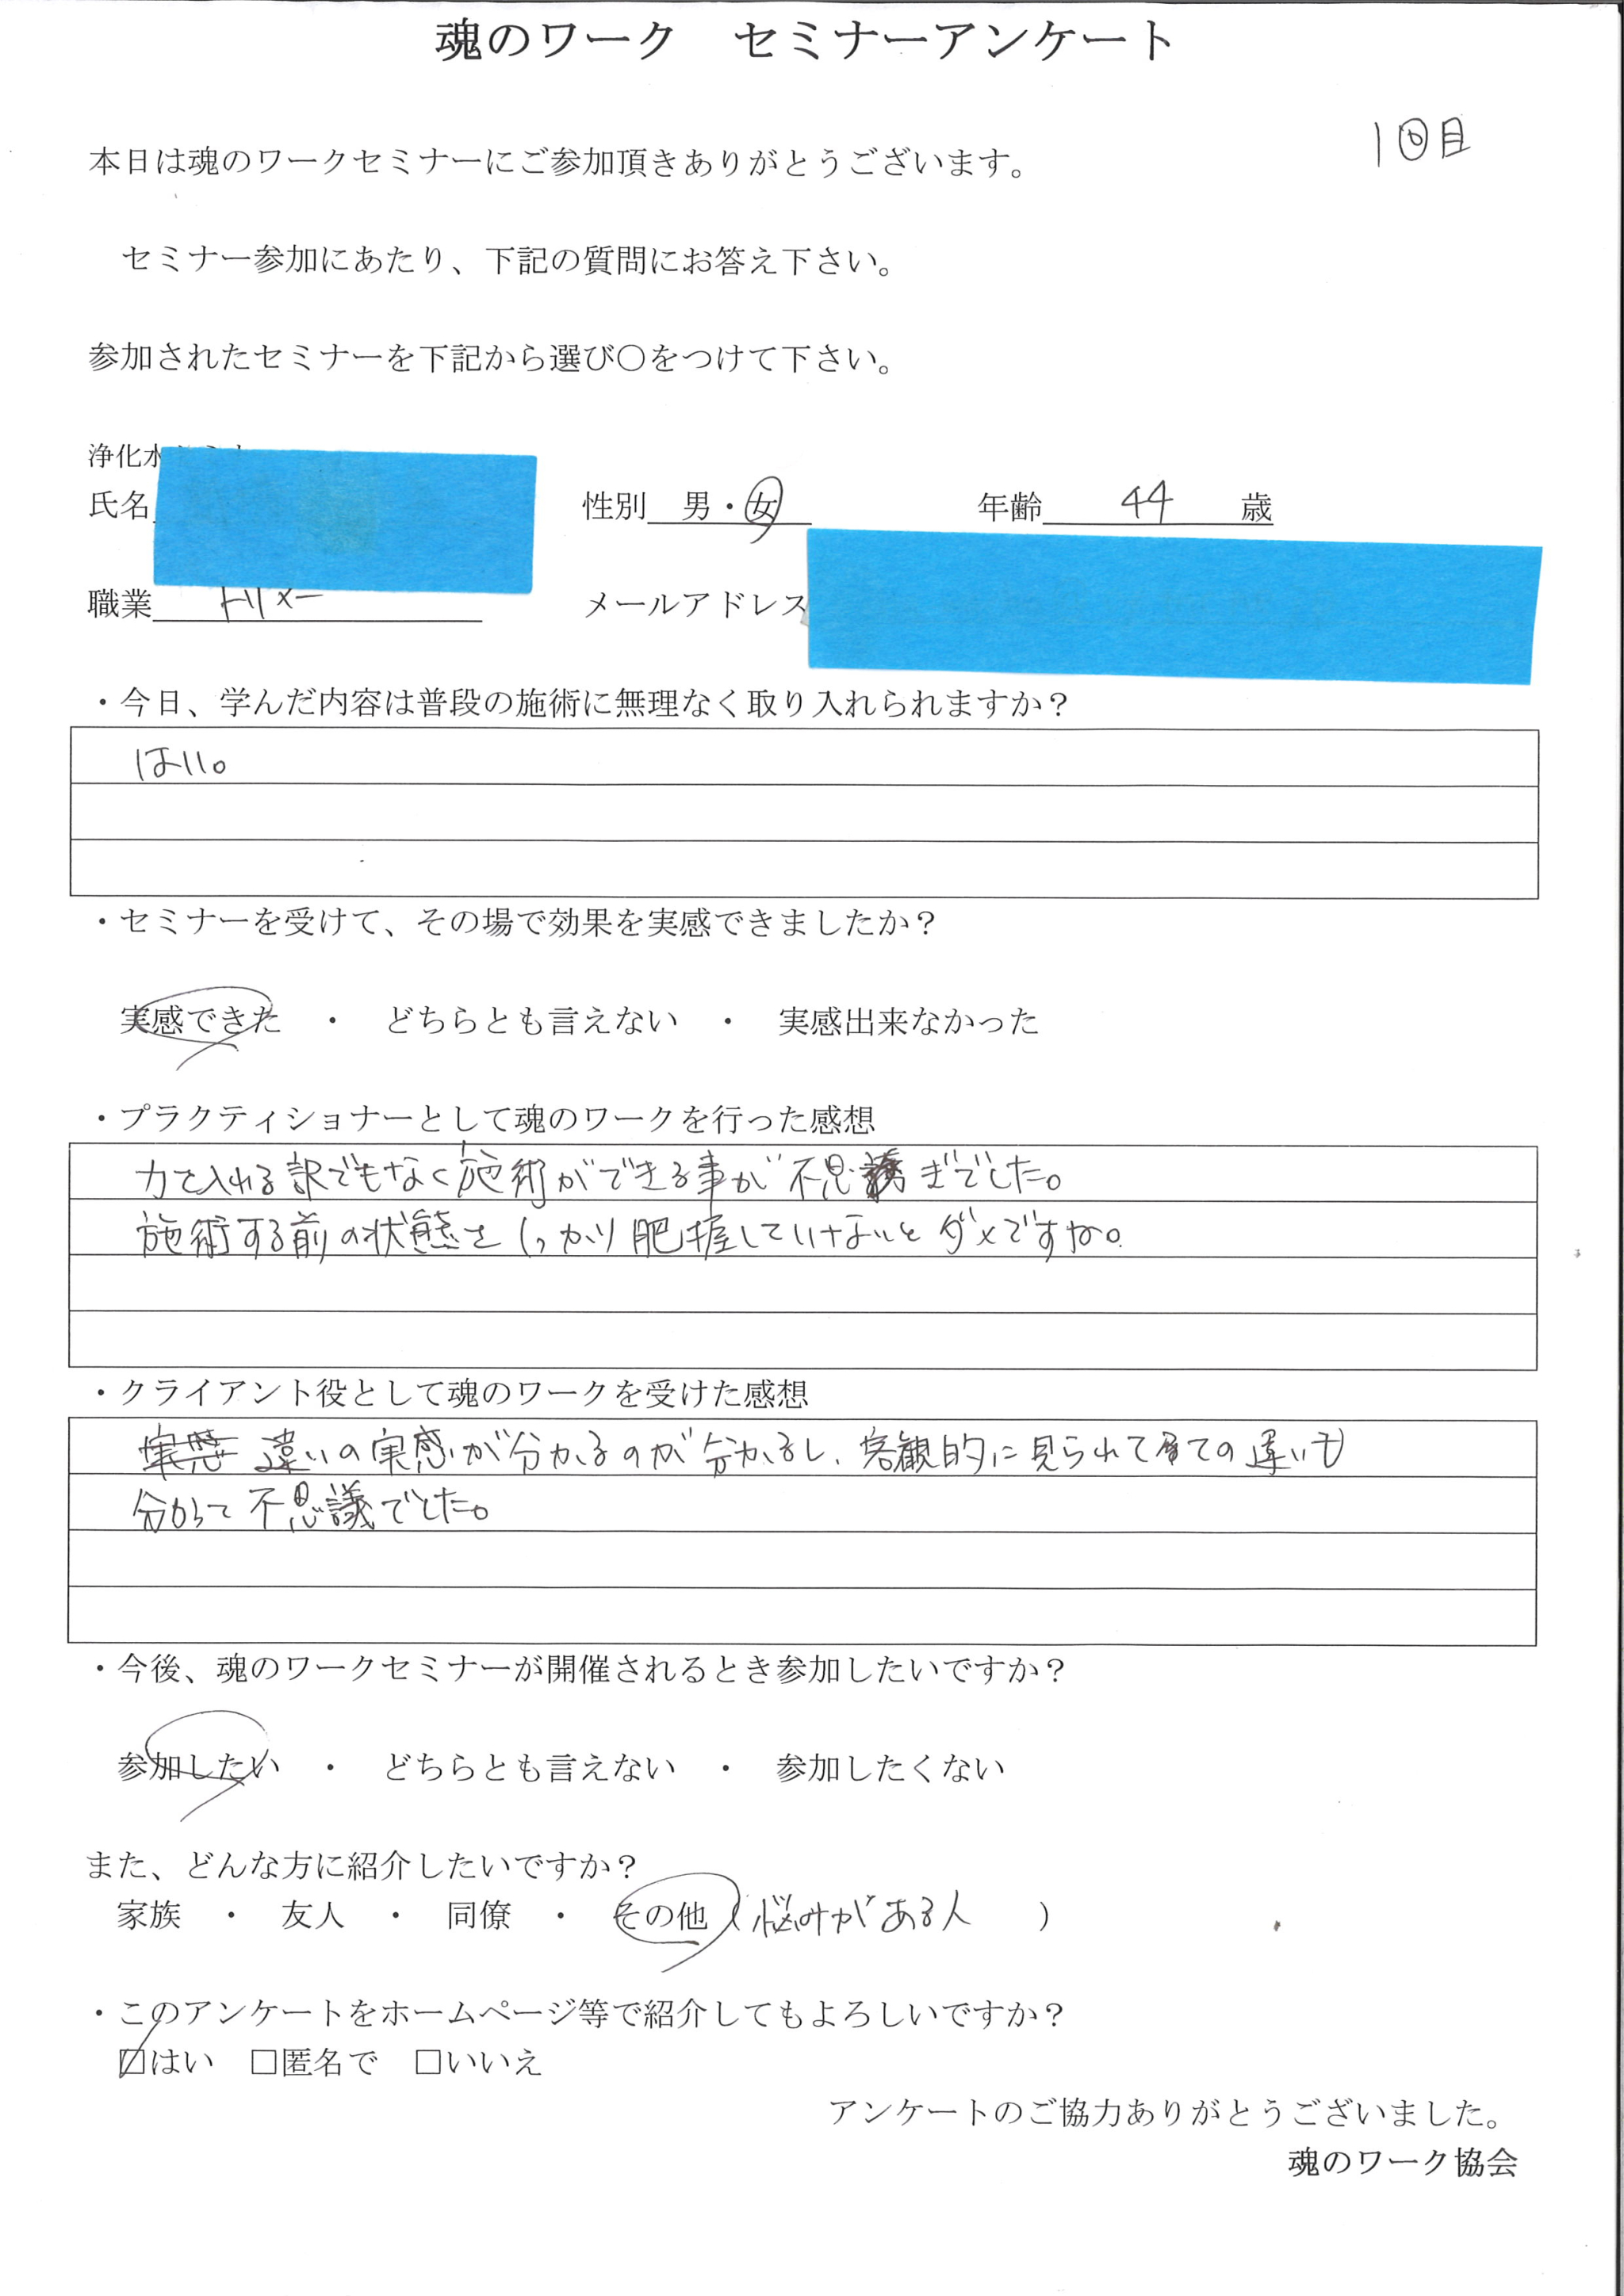 魂のワーク　セミナーアンケート
1回目
本日は魂のワークセミナーにご参加頂きありがとうございます。
セミナー参加にあたり、下記の質問にお答え下さい。
参加されたセミナーを下記から選び〇をつけて下さい。
浄化水
氏名　性別　男・女　年齢　44　歳
職業　トリマー　メールアドレス
・今日、学んだ内容は普段の施術に無理なく取り入れられますか？
はい。
・セミナーを受けて、その場で効果を実感できましたか？
実感できた　・　どちらとも言えない　・　実感出来なかった
・プラクティショナーとして魂のワークを行った感想
力を入れる訳でもなく施術ができる事が不思ぎでした。
施術する前の状態をしっかり肥握していないとダメですね。
・クライアント役として魂のワークを受けた感想
違いの実感が分かるのが分かるし、客観的に見られて の違いも
分かって不思議でした。
・今後、魂のワークセミナーが開催されるとき参加したいですか？
参加したい　・　どちらとも言えない　・　参加したくない
また、どんな方に紹介したいですか？
家族　・　友人　・　同僚　・　その他（悩みがある人　）
・このアンケートをホームページ等で紹介してもよろしいですか？
☑はい　□匿名で　□いいえ
アンケートのご協力ありがとうございました。
魂のワーク協会